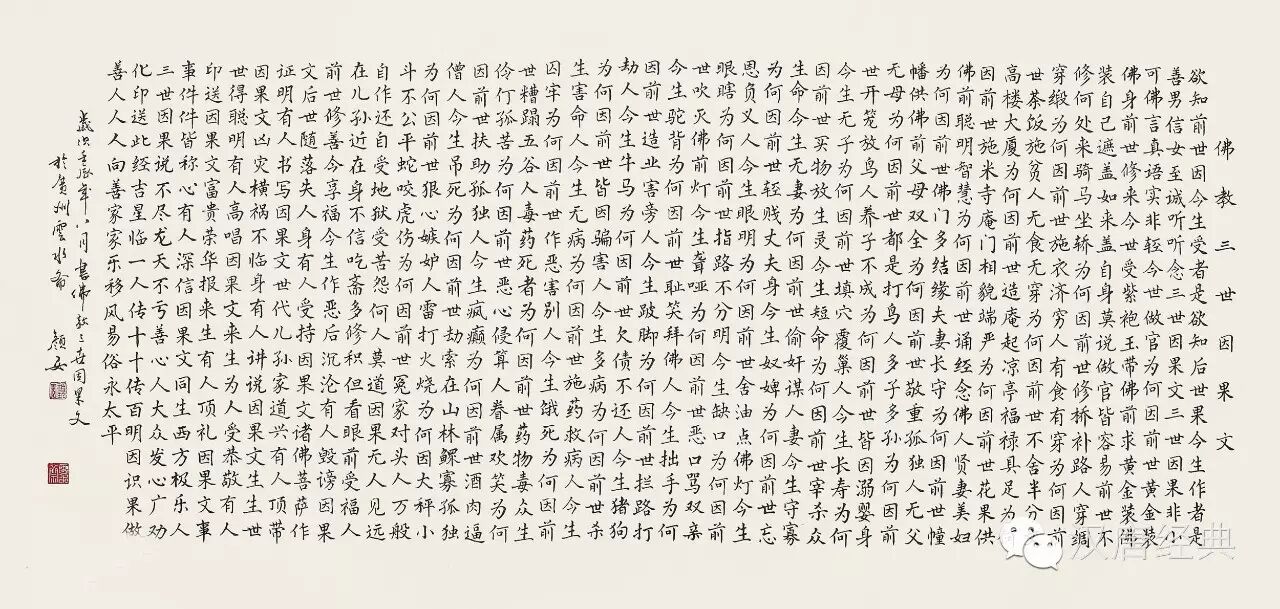 佛教三世因果文
欲知前世因今生受者是欲知后世果今生作者是
善男信女至诚听听念三世因果文三世因果非小
可佛言真语实非轻今世做官为何因前世黄金装
佛身前世修来今世受紫袍玉带佛前求黄金装佛
装自己遮盖如来盖自身莫说做官皆容易前世不
修何处来骑马坐轿为何因前世修桥补路人穿绸
穿缎为何因前世施衣济穷人有食有穿为何因前
世茶饭施贫人无食无穿为何因前世不舍半分文
高楼大厦为何因前世造庵起凉亭福禄具足为何
因前世施米寺庵门相貌端严为何因前世花果供
佛前聪明智慧为何因前世诵经念佛人贤妻美妇
为何因前世佛门多结缘夫妻长守为何因前世幢
幡供佛前父母双全为何因前世敬重孤独人无父
无母为何因前世都是打鸟人多子多孙为何因前
世开笼放鸟人养子不成为何因前世皆因溺婴身
今生无子为何因前世填穴覆巢人今生长寿为何
因前世买物放生灵今生短命为何因前世宰杀众
生命今生无妻为何因前世偷奸谋人妻今生守寡
为何因前世轻贱丈夫身今生奴婢为何因前世忘
恩负义人今生眼明为何因前世舍油点佛灯今生
眼瞎为何因前世指路不分明今生缺口为何因前
世吹灭佛灯今生聋哑为何因前世恶口骂双亲
今生驼背为何因前世耻笑拜佛人今生拙手为何
因前世造业害旁人今生跛脚为何因前世拦路打
劫人今生牛马为何因前世欠债不还人今生猪狗
为何因前世皆因骗害人今生多病为何因前世杀
生害命人今生无病为何因前世施药救病人今生
囚牢为何因前世作恶害别人今生饿死为何因前
世糟蹋五谷人毒药死者为何因前世药物毒众生
伶仃孤苦为何因前世恶心侵算人眷属欢笑为何
因前世扶助孤独人今生疯癫为何因前世酒肉逼
僧人今生吊死为何因前世劫索在山林鳏寡孤独
为何因前世狠心嫉妒人雷打火烧为何因大秤小
斗不公平蛇咬虎伤为何因前世冤家对头人万般
自作还自受地狱受苦怨何人莫道因果无人见远
在儿孙近在身不信吃斋多修积但看眼前受福人
前世修善今享福今生作恶后沉沦有人毁谤因果
文后世随落失人身有人受持因果文诸佛菩萨作
证明有人书写因果文世代儿孙家道兴有人顶带
因果文凶灾横祸不临身有人讲说因果文生生世
世得聪明有人高唱因果文来生为人受恭敬有人
印送因果文富贵荣华报来生有人顶礼因果文事
事件件皆称心有人深信因果文同生西方极乐人
三世因果说不尽龙天不亏善心人大众发心广劝
化印送此经吉星临一人传十十传百明因识果做
善人人人向善家家乐移风易俗永太平
歲次壬辰年八月書佛教三世因果文
於贵州雲水斋
汉唐经典